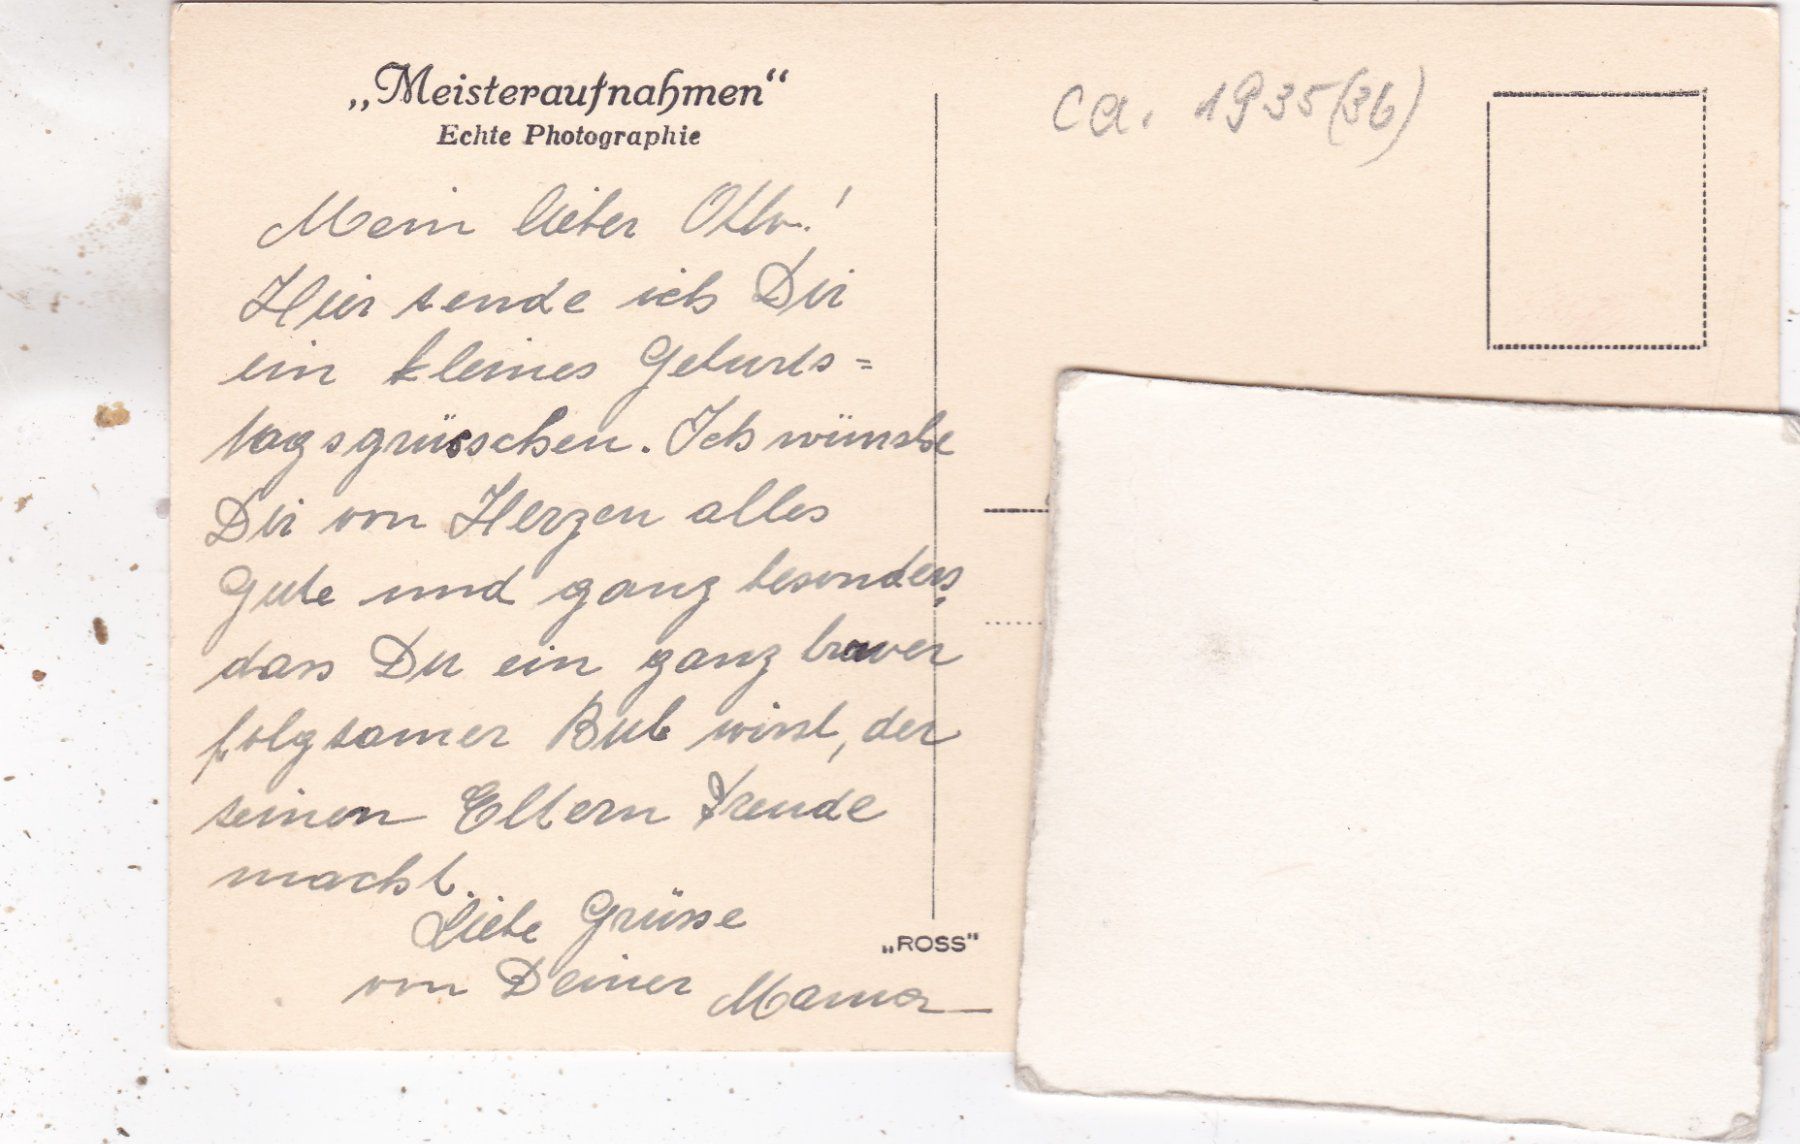 „Meisteraufnahmen“
Echte Photographie
ca. 1935(36)
Mein lieber Otto!
Hier sende ich Dir
ein kleines Geburts=
tagsgrüsschen. Ich wünsche
Dir von Herzen alles
Gute und ganz besonders,
dass Du ein ganz braver
folgsamer Bub wirst, der
seinen Eltern Freude
macht.
Liebe Grüsse
von Deiner Mama
„ROSS“